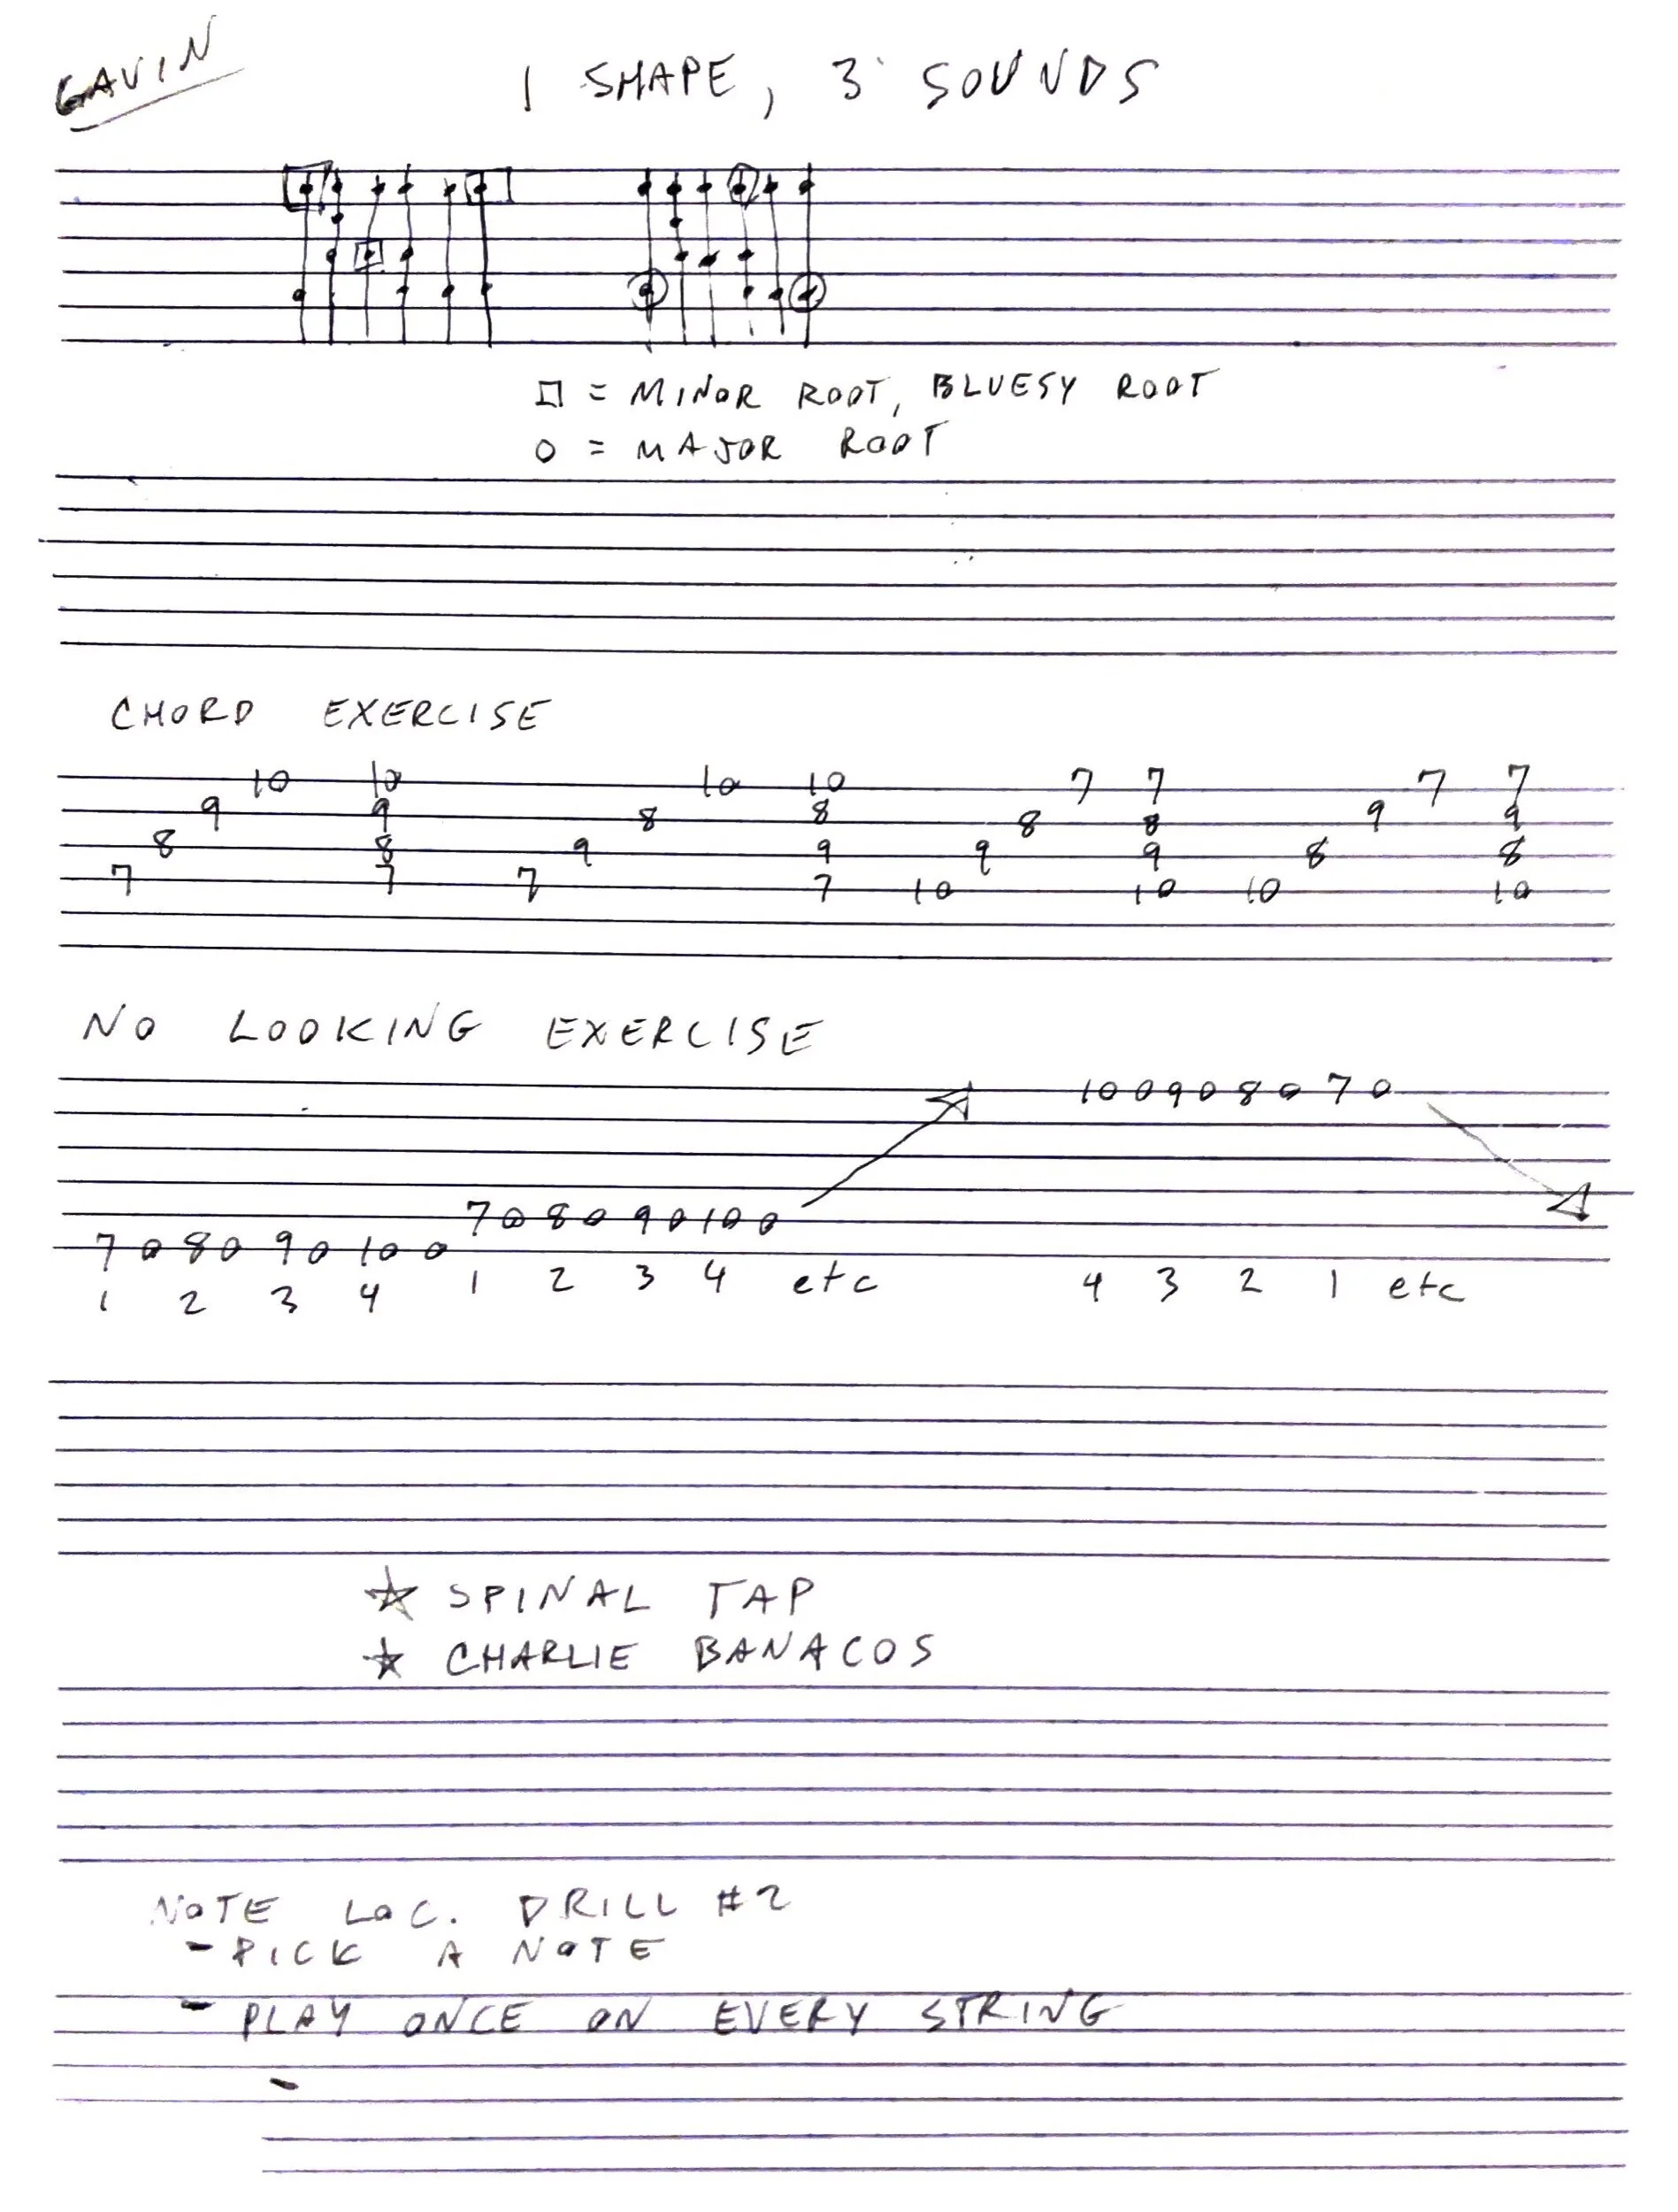 GAVIN
1 SHAPE, 3 SOUNDS
□ = MINOR ROOT, BLUESY ROOT
O = MAJOR ROOT
CHORD EXERCISE
10 10 10 10 7 7 7 7
9 9 8 8 8 8 9 9
8 8 9 9 9 9 8 8
7 7 7 7 10 10 10 10
NO LOOKING EXERCISE
10 0 9 0 8 0 7 0
7 0 8 0 9 0 10 0
7 0 8 0 9 0 10 0
1 2 3 4 1 2 3 4 etc 4 3 2 1 etc
☆ SPINAL TAP
☆ CHARLIE BANACOS
NOTE LOC. DRILL #2
- PICK A NOTE
- PLAY ONCE ON EVERY STRING
-